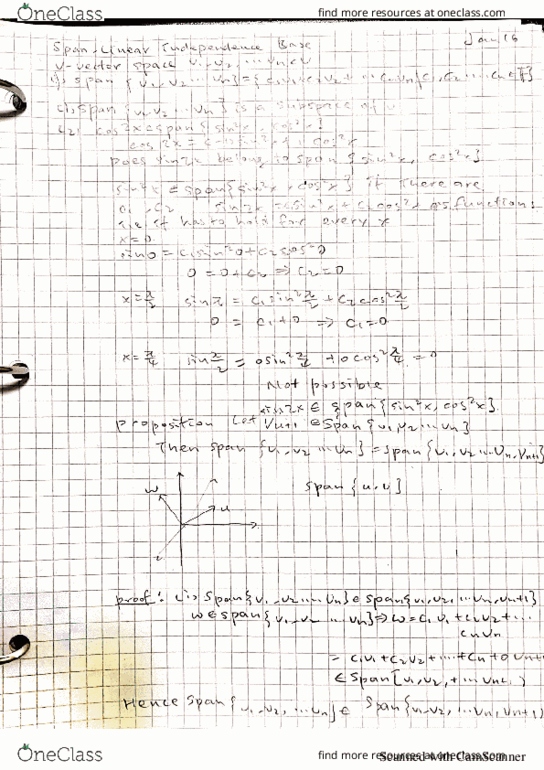 OneClass
find more resources at oneclass.com
Span, Linear Independence Base
Jan 16
V-vector space v1, v2 ... vn ∈ V
span {v1, v2 ... vn} = {
span {v1, v2 ... vn} is a subspace of
cos2x ∈ span {sin²x, cos²x}
cos 2x =
Does sin2x belong to span {sin²x, cos²x}
span {sin²x, cos²x} if there are
c1, c2 sin2x = c1sin²x + c2cos²x as function:
i.e. it has to hold for every x
x=0
sin0 = c1sin²0 + c2cos²0
0 = 0 + c2 ⇒ c2 = 0
x = π/2 sinπ = c1sin²π/2 + c2cos²π/2
0 = c1 + 0 ⇒ c1 = 0
x = π/4 sin π/2 = 0sin²π/4 + 0cos²π/4 = 0
Not possible
sin2x ∈ span {sin²x, cos²x}
proposition Let vn+1 ∈ span {v1, v2 ... vn}
Then span {v1, v2 ... vn} = span {v1, v2 ... vn, vn+1}
span {u, v}
w
u
proof: (i) span {v1, v2 ... vn} ∈ span {v1, v2, ... vn, vn+1}
w ∈ span {v1, v2 ... vn} ⇒ w = c1v1 + c2v2 + ...
cnvn
= c1v1 + c2v2 + ... + cn + 0vn+1
∈ span {v1, v2, + ... vn+1}
Hence span {v1, v2, ... vn} ∈ span {v1, v2, ... vn, vn+1}
OneClass
find more resources at oneclass.com
Scanned with CamScanner